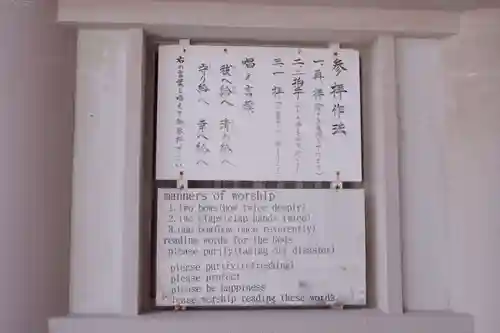 参拝作法
一再拝
二二拍手
三一拝
唱え言葉
祓へ給へ 清め給へ
守り給へ 幸へ給へ
右の言葉を唱えて
manners of worship
1.two bows(bow twice deeply)
2.two claps(clap hands twice)
3.one bow(bow once reverently)
reading words for the Gods
please purify(taking off disaster)
please purify(refreshing)
please protect
please be happiness
please worship reading these words